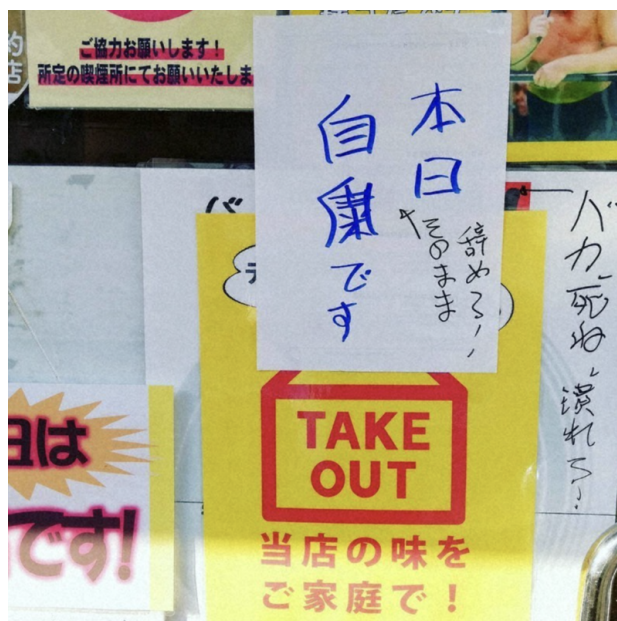 約
店
ご協力お願いします!
所定の喫煙所にてお願いいたしま
本日
自粛です
そのまま
辞めろ!
バカ、死ね、潰れろ!
バ
テ
TAKE
OUT
当店の味を
ご家庭で!
日は
です!